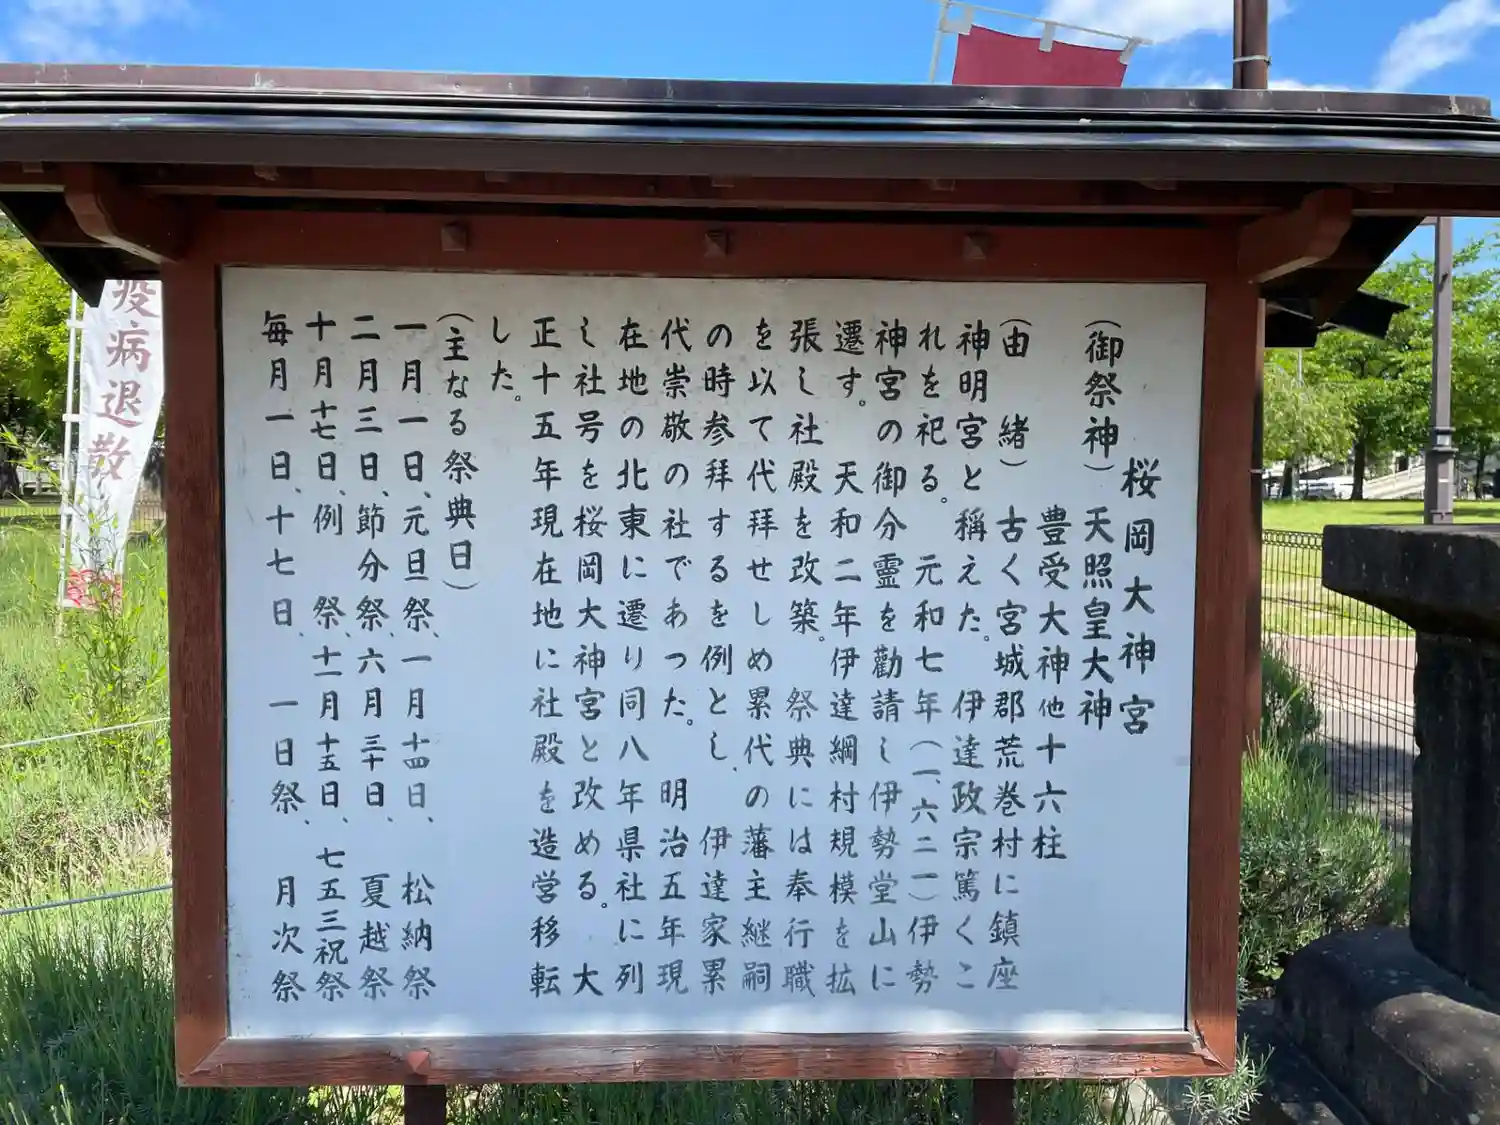 桜岡大神宮
(御祭神)天照皇大神
豊受大神他十六柱
(由 緒) 古く宮城郡荒巻村に鎮座
神明宮と稱えた。伊達政宗篤くこ
れを祀る。 元和七年(一、六二一)伊勢
神宮の御分霊を勸請し伊勢堂山に
遷す。 天和二年伊達綱村規模を拡
張し社殿を改築。 祭典には奉行職
を以て代拝せしめ累代の藩主継嗣
の時参拝するを例とし、 伊達家累
代崇敬の社であった。 明治五年現
在地の北東に遷り同八年県社に列
し社号を桜岡大神宮と改める。 大
正十五年現在地に社殿を造営移転
した。
(主なる祭典日)
一月一日、元旦祭、一月十四日、 松納祭
二月三日、節分祭、六月三十日、 夏越祭
十月十七日、例 祭、十一月十五日、七五三祝祭
毎月一日、十七日、 一日祭、 月次祭
疫病退散